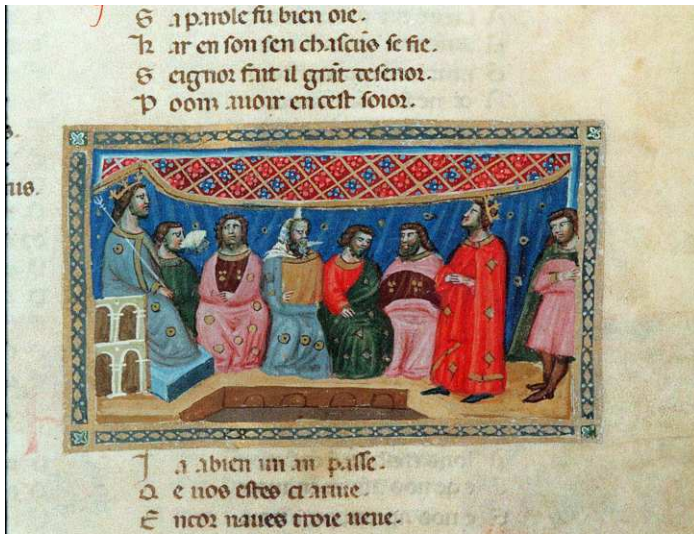 S a parole fu bien oie.
K ar en son sen chascūs se fie.
S eignor fait il grāt tesenor.
P oom auoir en cest soior.
s.
ns.
J a abien un an passe.
Q e uos estes ci ariue.
E ncor naues troie ueue.